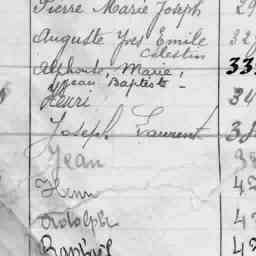 Pierre Marie Joseph 29
Auguste Yves Emile 32
Célestin
Alphonse, Marie, 33
Jean Baptiste -
Henri 34
Joseph Laurent 38
Jean 38
Henri 47
Adolphe 47
Raphaël 47